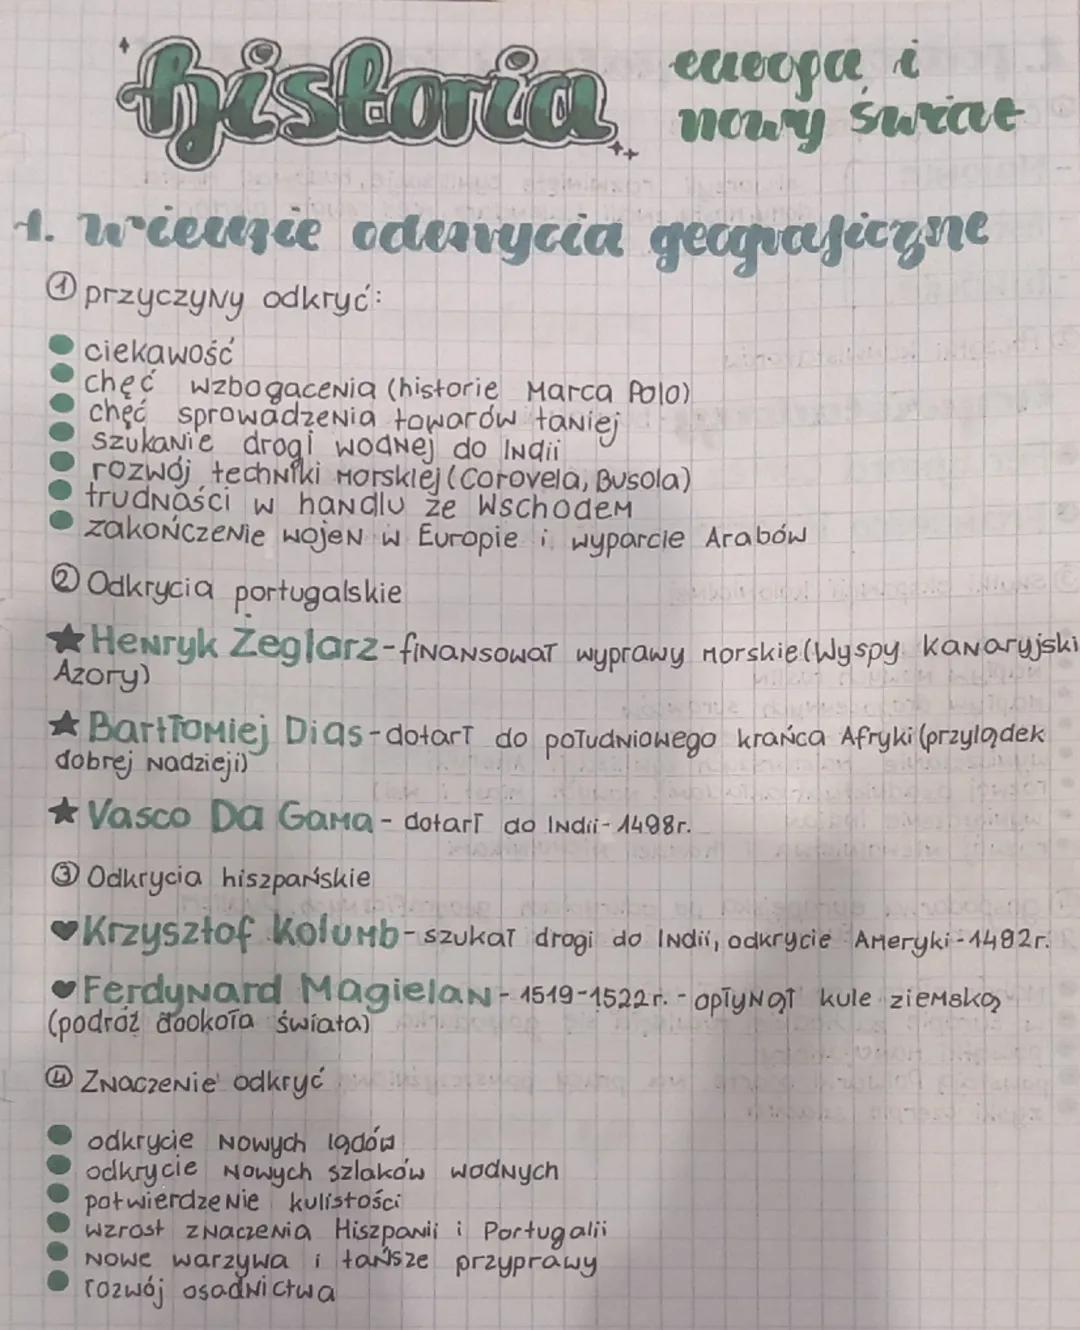 historia
europa i
nowy świat
1. Wielkie odkrycia geograficzne
① przyczyny odkryć:
ciekawość
chęć wzbogacenia (historie Marca Polo)
chęć sprowadzenia towarów taniej
szukanie drogi wodnej do Indii
rozwój techniki morskiej (Corovela, Busola)
trudności w handlu ze Wschodem
zakończenie wojen w Europie i wyparcie Arabów
② Odkrycia portugalskie
★ Henryk Żeglarz - finansował wyprawy morskie (Wyspy Kanaryjski
Azory)
★ Bartłomiej Dias - dotarł do południowego krańca Afryki (przylądek
dobrej nadzieji)
★ Vasco Da Gama - dotarł do Indii - 1498r.
③ Odkrycia hiszpańskie
♥ Krzysztof Kolumb - szukał drogi do Indii, odkrycie Ameryki - 1492r.
♥ Ferdynard Magielan - 1519-1522r. - opłynął kule ziemską
(podróż dookoła świata)
④ Znaczenie odkryć
odkrycie nowych lądów
odkrycie nowych szlaków wodnych
potwierdzenie kulistości
wzrost znaczenia Hiszpanii i Portugalii
nowe warzywa i tańsze przyprawy
rozwój osadnictwa